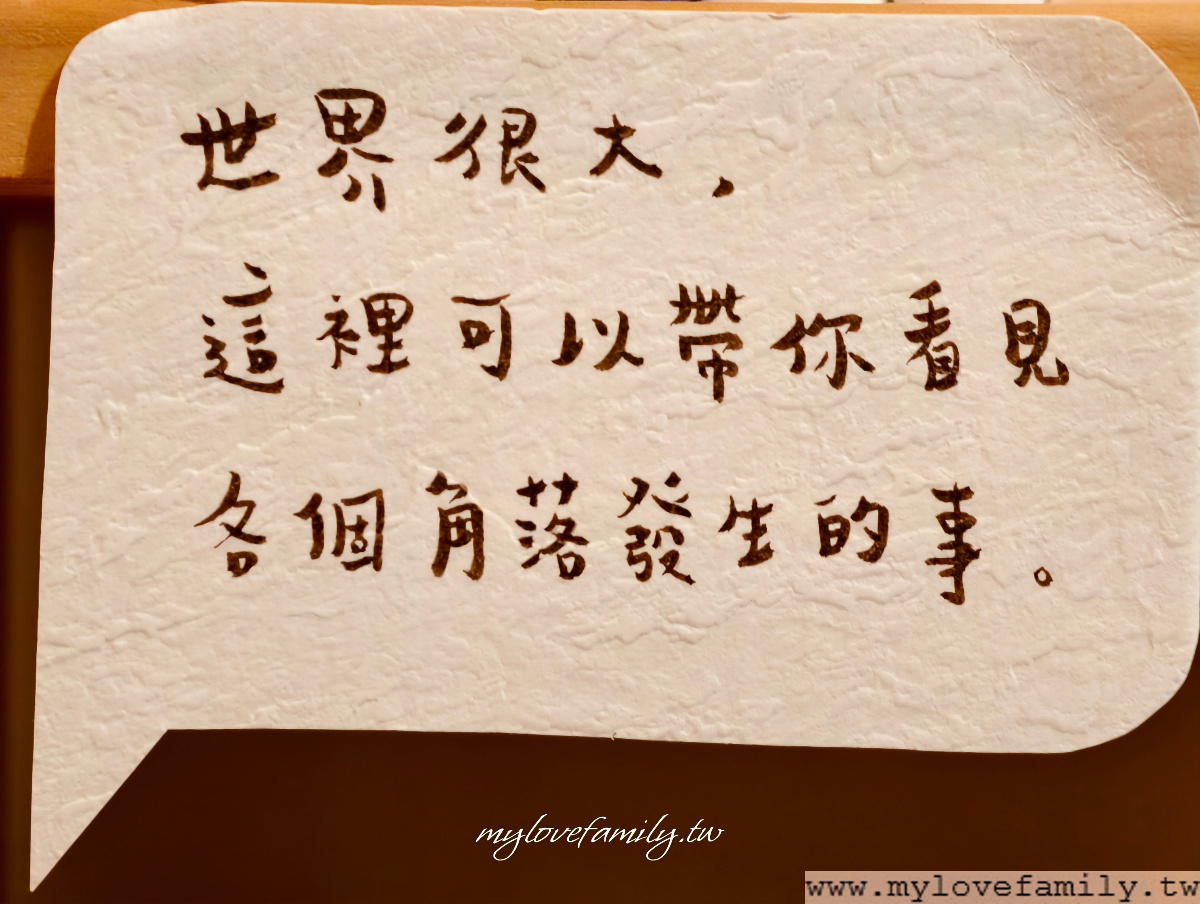 世界很大，
這裡可以帶你看見
各個角落發生的事。
mylovefamily.tw
www.mylovefamily.tw